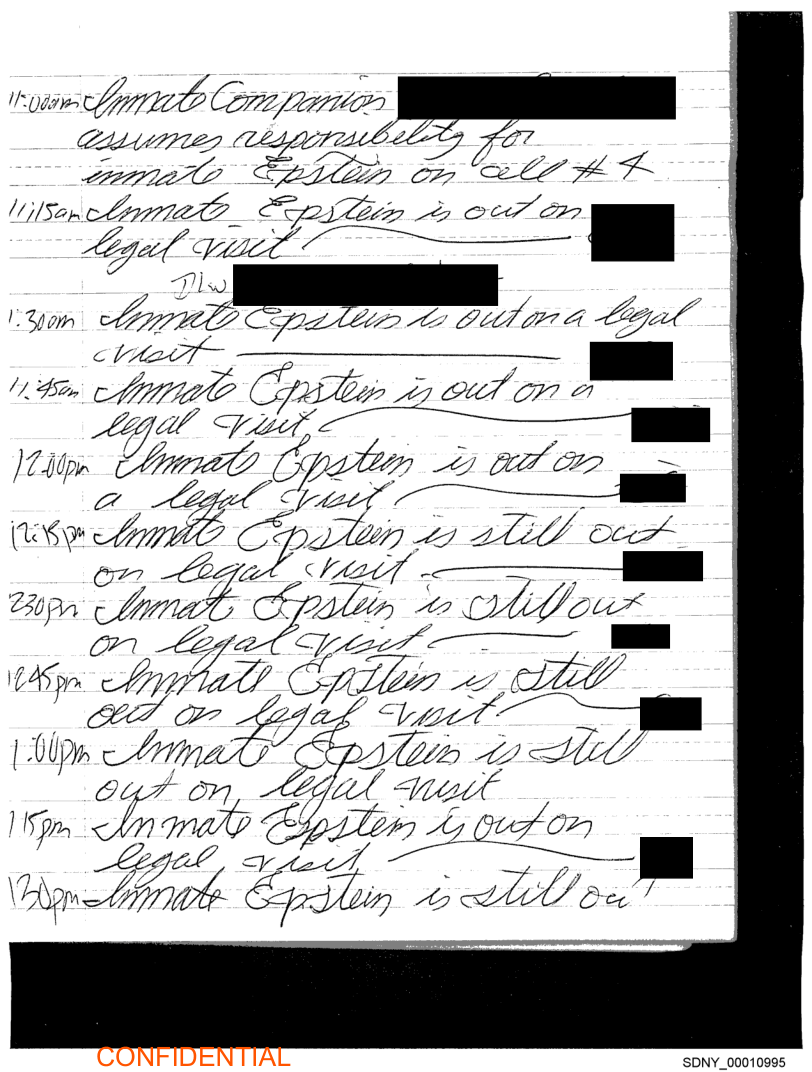 11:00am Inmate Companion
assumes responsibility for
inmate Epstein on cell # 4
11:15am Inmate Epstein is out on
legal visit
:30am Inmate Epstein is out on a legal
visit
11:45am Inmate Epstein is out on a
legal visit
12:00pm Inmate Epstein is out on
a legal visit
12:15pm Inmate Epstein is still out
on legal visit
230pm Inmat Epstein is still out
on legal visit
1245pm Inmate Epstein is still
out on legal visit
1:00pm Inmate Epstein is still
out on legal visit
115pm Inmate Epstein is out on
legal visit
130pm Inmate Epstein is still ou
CONFIDENTIAL
SDNY_00010995